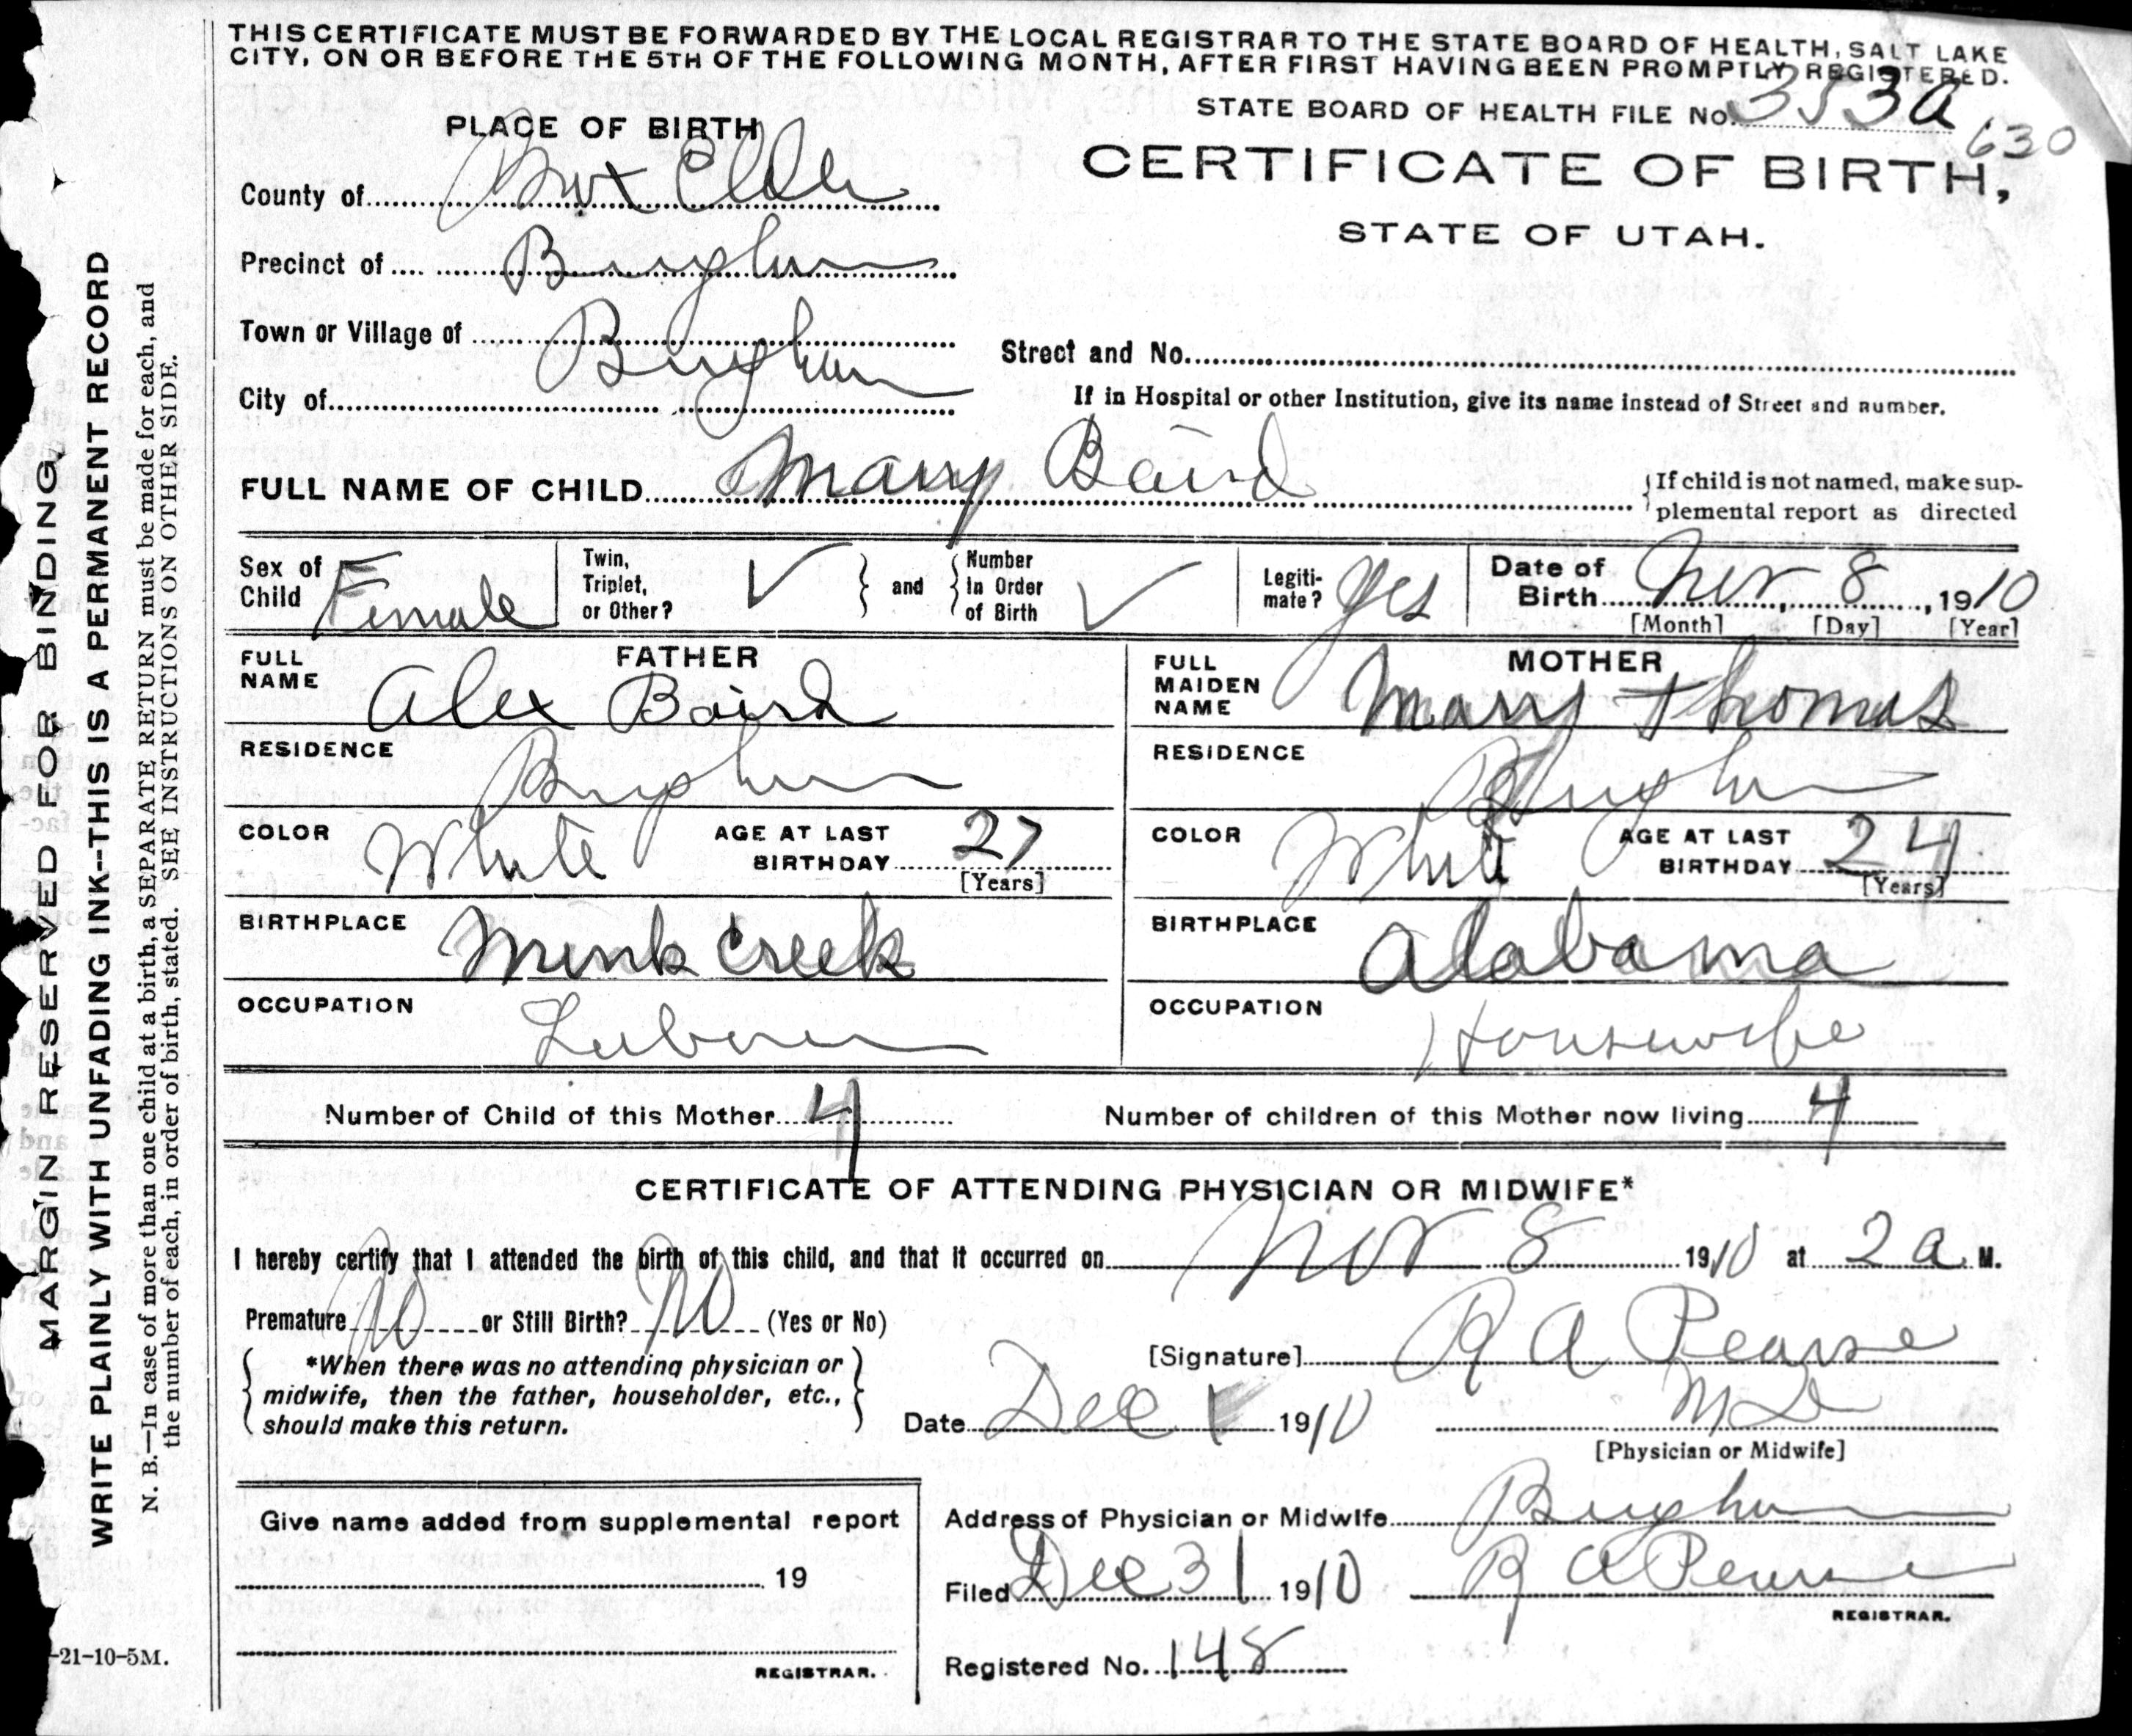 THIS CERTIFICATE MUST BE FORWARDED BY THE LOCAL REGISTRAR TO THE STATE BOARD OF HEALTH, SALT LAKE
CITY, ON OR BEFORE THE 5TH OF THE FOLLOWING MONTH, AFTER FIRST HAVING BEEN PROMPTLY REGISTERED.
STATE BOARD OF HEALTH FILE No. 353a
630
PLACE OF BIRTH
CERTIFICATE OF BIRTH,
STATE OF UTAH.
County of Box Elder
Precinct of Brigham
Town or Village of Brigham
Street and No.
City of
If in Hospital or other Institution, give its name instead of Street and number.
FULL NAME OF CHILD Mary Baird
{If child is not named, make sup-
plemental report as directed
Sex of Child Female
Twin, Triplet, or Other? ✓ } and { Number In Order of Birth ✓
Legiti-mate? Yes
Date of Birth Nov 8, 1910
[Month] [Day] [Year]
FATHER
FULL NAME Alex Baird
RESIDENCE Brigham
COLOR White AGE AT LAST BIRTHDAY 27 [Years]
BIRTHPLACE Mink Creek
OCCUPATION Laborer
MOTHER
FULL MAIDEN NAME Mary Thomas
RESIDENCE Brigham
COLOR White AGE AT LAST BIRTHDAY 24 [Years]
BIRTHPLACE Alabama
OCCUPATION Housewife
Number of Child of this Mother 4 Number of children of this Mother now living 4
CERTIFICATE OF ATTENDING PHYSICIAN OR MIDWIFE*
I hereby certify that I attended the birth of this child, and that it occurred on Nov 8 1910 at 2 a. M.
Premature No or Still Birth? No (Yes or No)
{ *When there was no attending physician or
midwife, then the father, householder, etc.,
should make this return. }
[Signature] R A Pearse
M D
[Physician or Midwife]
Date Dec 1 1910
Give name added from supplemental report
19
REGISTRAR.
Address of Physician or Midwife Brigham
Filed Dec 31 1910 R A Pearse
REGISTRAR.
Registered No. 148
MARGIN RESERVED FOR BINDING.
WRITE PLAINLY WITH UNFADING INK--THIS IS A PERMANENT RECORD
N. B.—In case of more than one child at a birth, a SEPARATE RETURN must be made for each, and
the number of each, in order of birth, stated. SEE INSTRUCTIONS ON OTHER SIDE.
-21-10-5M.